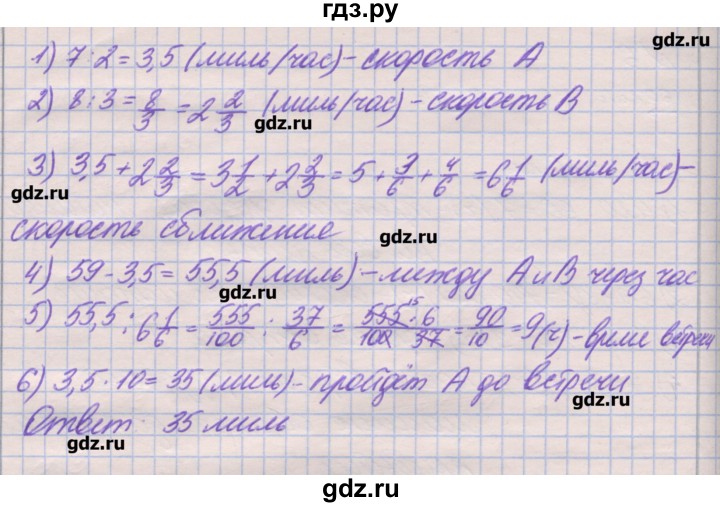 гдз.ру
gdz.ru
1) 7:2=3,5 (миль/час) - скорость А
2) 8:3= 8/3 = 2 2/3 (миль/час) - скорость В
gdz.ru
3) 3,5 + 2 2/3 = 3 1/2 + 2 2/3 = 5 + 3/6 + 4/6 = 6 1/6 (миль/час) -
gdz.ru
скорость сближение
gdz.ru
4) 59 - 3,5 = 55,5 (миль) - между А и В через час
gdz.ru
5) 55,5 : 6 1/6 = 555/100 : 37/6 = 555 15 · 6 / 100 · 37 = 90/10 = 9 (ч) - время встречи
6) 3,5 · 10 = 35 (миль) - пройдёт А до встречи
gdz.ru
Ответ: 35 миль
gdz.ru
gdz.ru